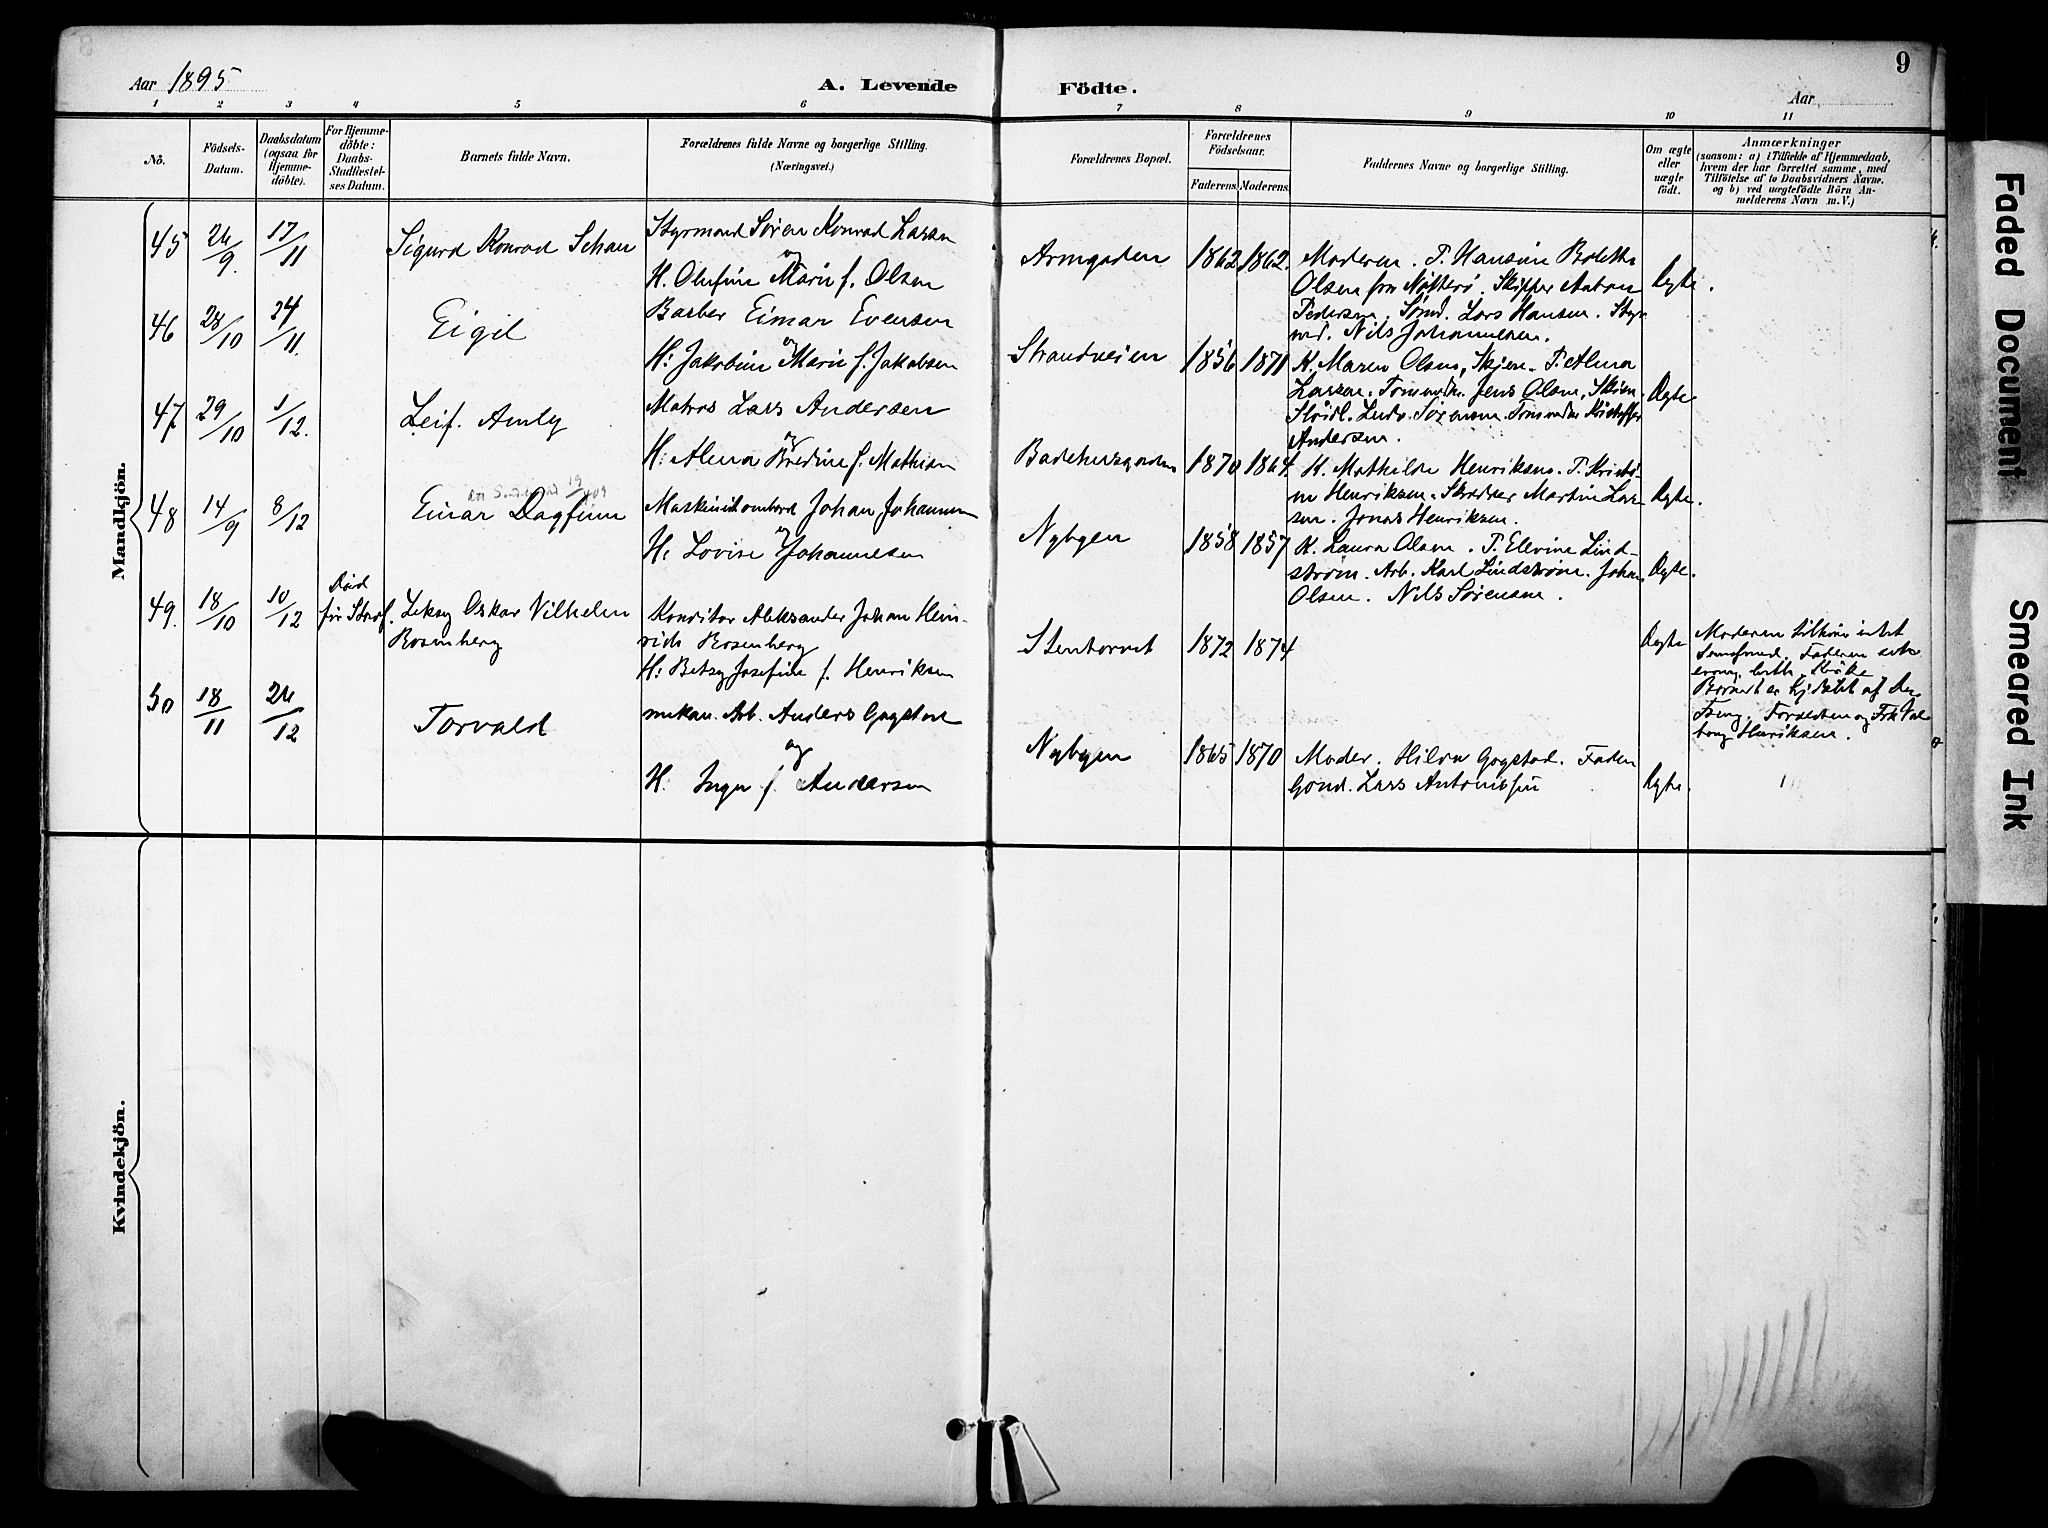 9
Aar 1895
A. Levende Födte.
Aar
1 2 3 4 5 6 7 8 9 10 11
No.
Födsels-
Datum.
Daabsdatum
(ogsaa for
Hjemme-
döbte).
For Hjemme-
döbte:
Daabs-
Stadfæstel-
ses Datum.
Barnets fulde Navn.
Forældrenes fulde Navne og borgerlige Stilling.
(Næringsvei.)
Forældrenes Bopæl.
Forældrenes
Födselsaar.
Faderens. Moderens.
Faddernes Navne og borgerlige Stilling.
Om ægte
eller
uægte
födt.
Anmærkninger
(saasom: a) i Tilfælde af Hjemmedaab,
hvem der har forrettet samme, med
Tilföielse af to Daabsvidners Navne.
og b) ved uægtefödte Börn An-
melderens Navn m. V.)
Mandkjön.
45 24/9. 17/11 Sigurd Konrad Schau
Styrmand Søren Konrad Larsen
og
H. Olufine Marie f. Olsen
Armgaden 1862 1862.
Moderen. P. Hansine Bolette
Olsen fra Nøtterø. Skipper Anton
Pedersen. Sømd. Lars Hansen. Styr
md. Nils Johannesen.
Ægte.
46 28/10 24/11. Eigil
Barber Eimar Evensen
og
H: Jakobine Marie f. Jakobsen
Strandveien 1856 1871
K. Maren Olsen, Skjeen. P. Alma
Larsen. Tømmedm. Jens Olsen, Skien.
Ludv. Sørensen. Tømmedm Kristoffer
Andersen.
Ægte
47. 29/10 1/12. Leif. Amly
Matros Lars Andersen
og
H: Alma Bredine f. Mathisen
Badehusgaden 1870 1864.
K. Mathilde Henriksen. P. Kristi-
ne Henriksen. Skrædder Martin Lar-
sen. Jonas Henriksen.
Ægte.
48 14/9 8/12 Einar Dagfinn
19/4 09
Maskinist ombord Johan Johannesen
og
H: Lovise Johannesen
Nybyen 1858 1857
K. Laura Olsen. P. Elevine Lind-
strøm. Arb. Karl Lindstrøm. Johan
Olsen. Nils Sørensen.
Ægte.
49. 18/10 10/12
Død
før Stadf.
Leksy Oskar Vilhelm
Rosenberg
Konditor Aleksander Johan Hein-
rich Rosenberg
H: Betsy Josefine f. Henriksen
Stentorvet 1872 1874
Ægte
Moderen tilhører intet
Samfund. Faderen
luth. Kirke
Barnet er hj.døbt af
Forældrene og Frk Val-
borg Henriksen.
50 18/11 24/12 Torvald
mekan. Arb. Anders Gogstad
og
H. Inga f. Andersen
Nybyen 1865 1870
Moder. Hilda Gogstad. Fader
Gaard. Lars Antonissen
Ægte.
Kvindekjön.
Faded Document
Smeared Ink